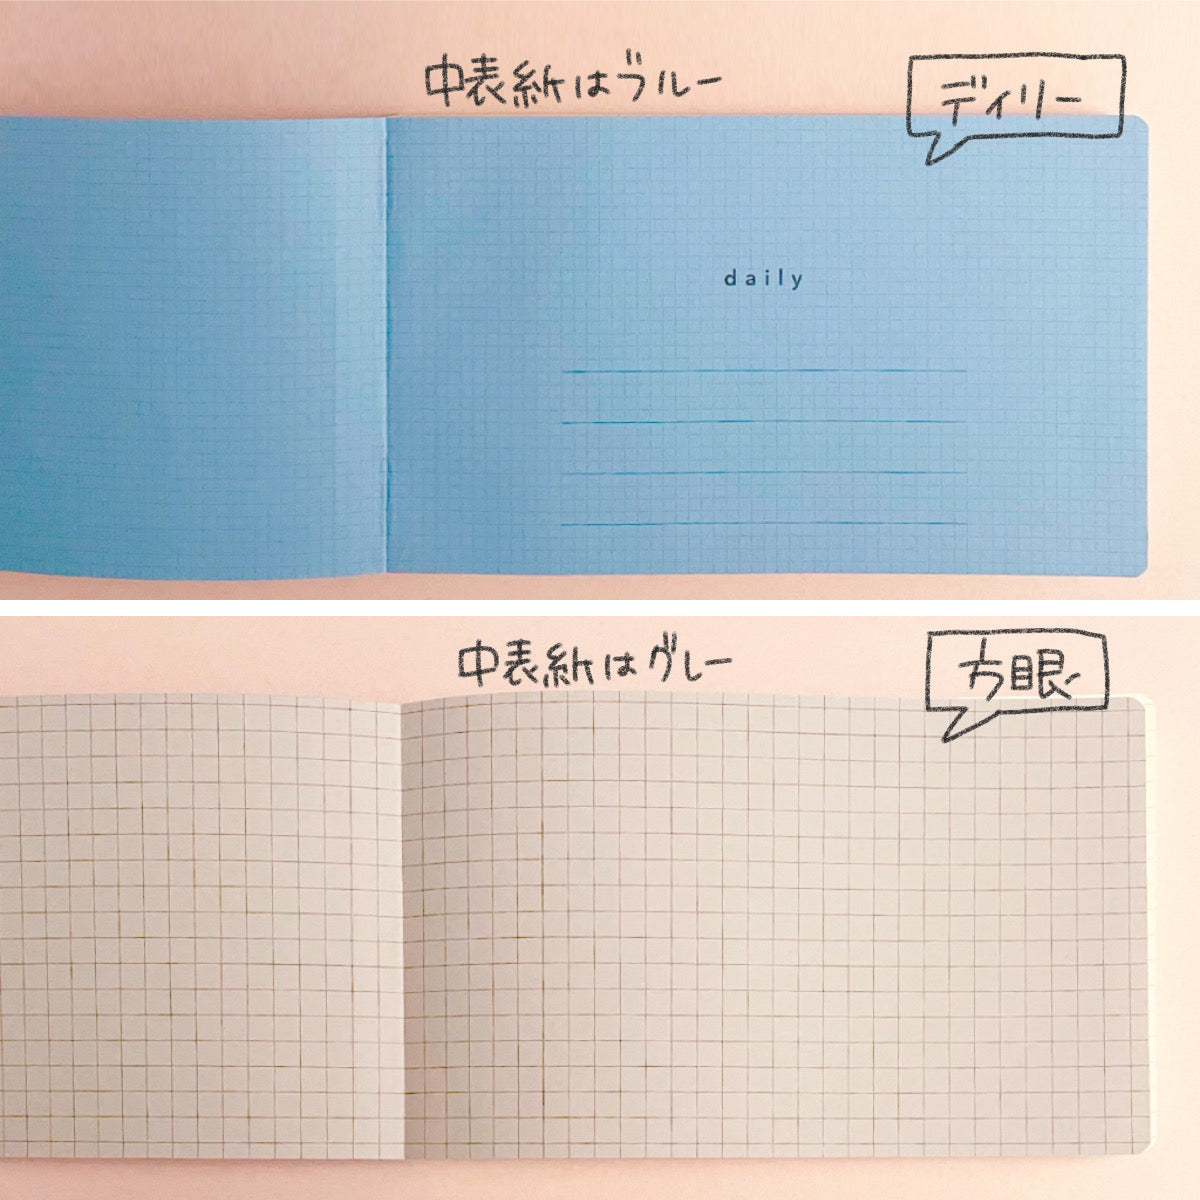 中表紙はブルー
デイリー
daily
中表紙はグレー
方眼